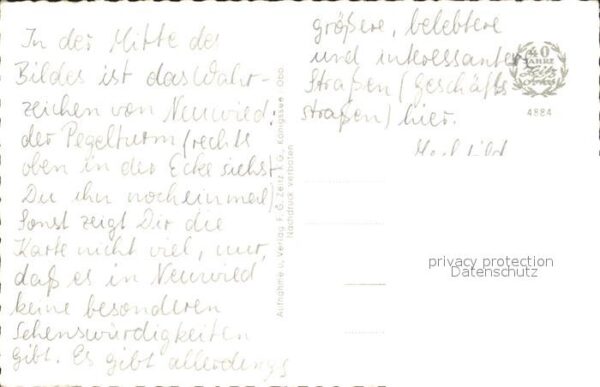 In der Mitte des
Bildes ist das Wahr-
zeichen von Neuwied:
der Pegelturm (rechts
oben in der Ecke siehst
Du ihn nocheinmal)
Sonst zeigt Dir die
Karte nicht viel, nur,
daß es in Neuwied
keine besonderen
Sehenswürdigkeiten
gibt. Es gibt allerdings
größere, belebtere
und interessante
Straßen (Geschäfts
straßen) hier.
Aufnahme u. Verlag F. G. Zeitz K.G., Königssee / Obb
Nachdruck verboten
40
JAHRE
4884
privacy protection
Datenschutz